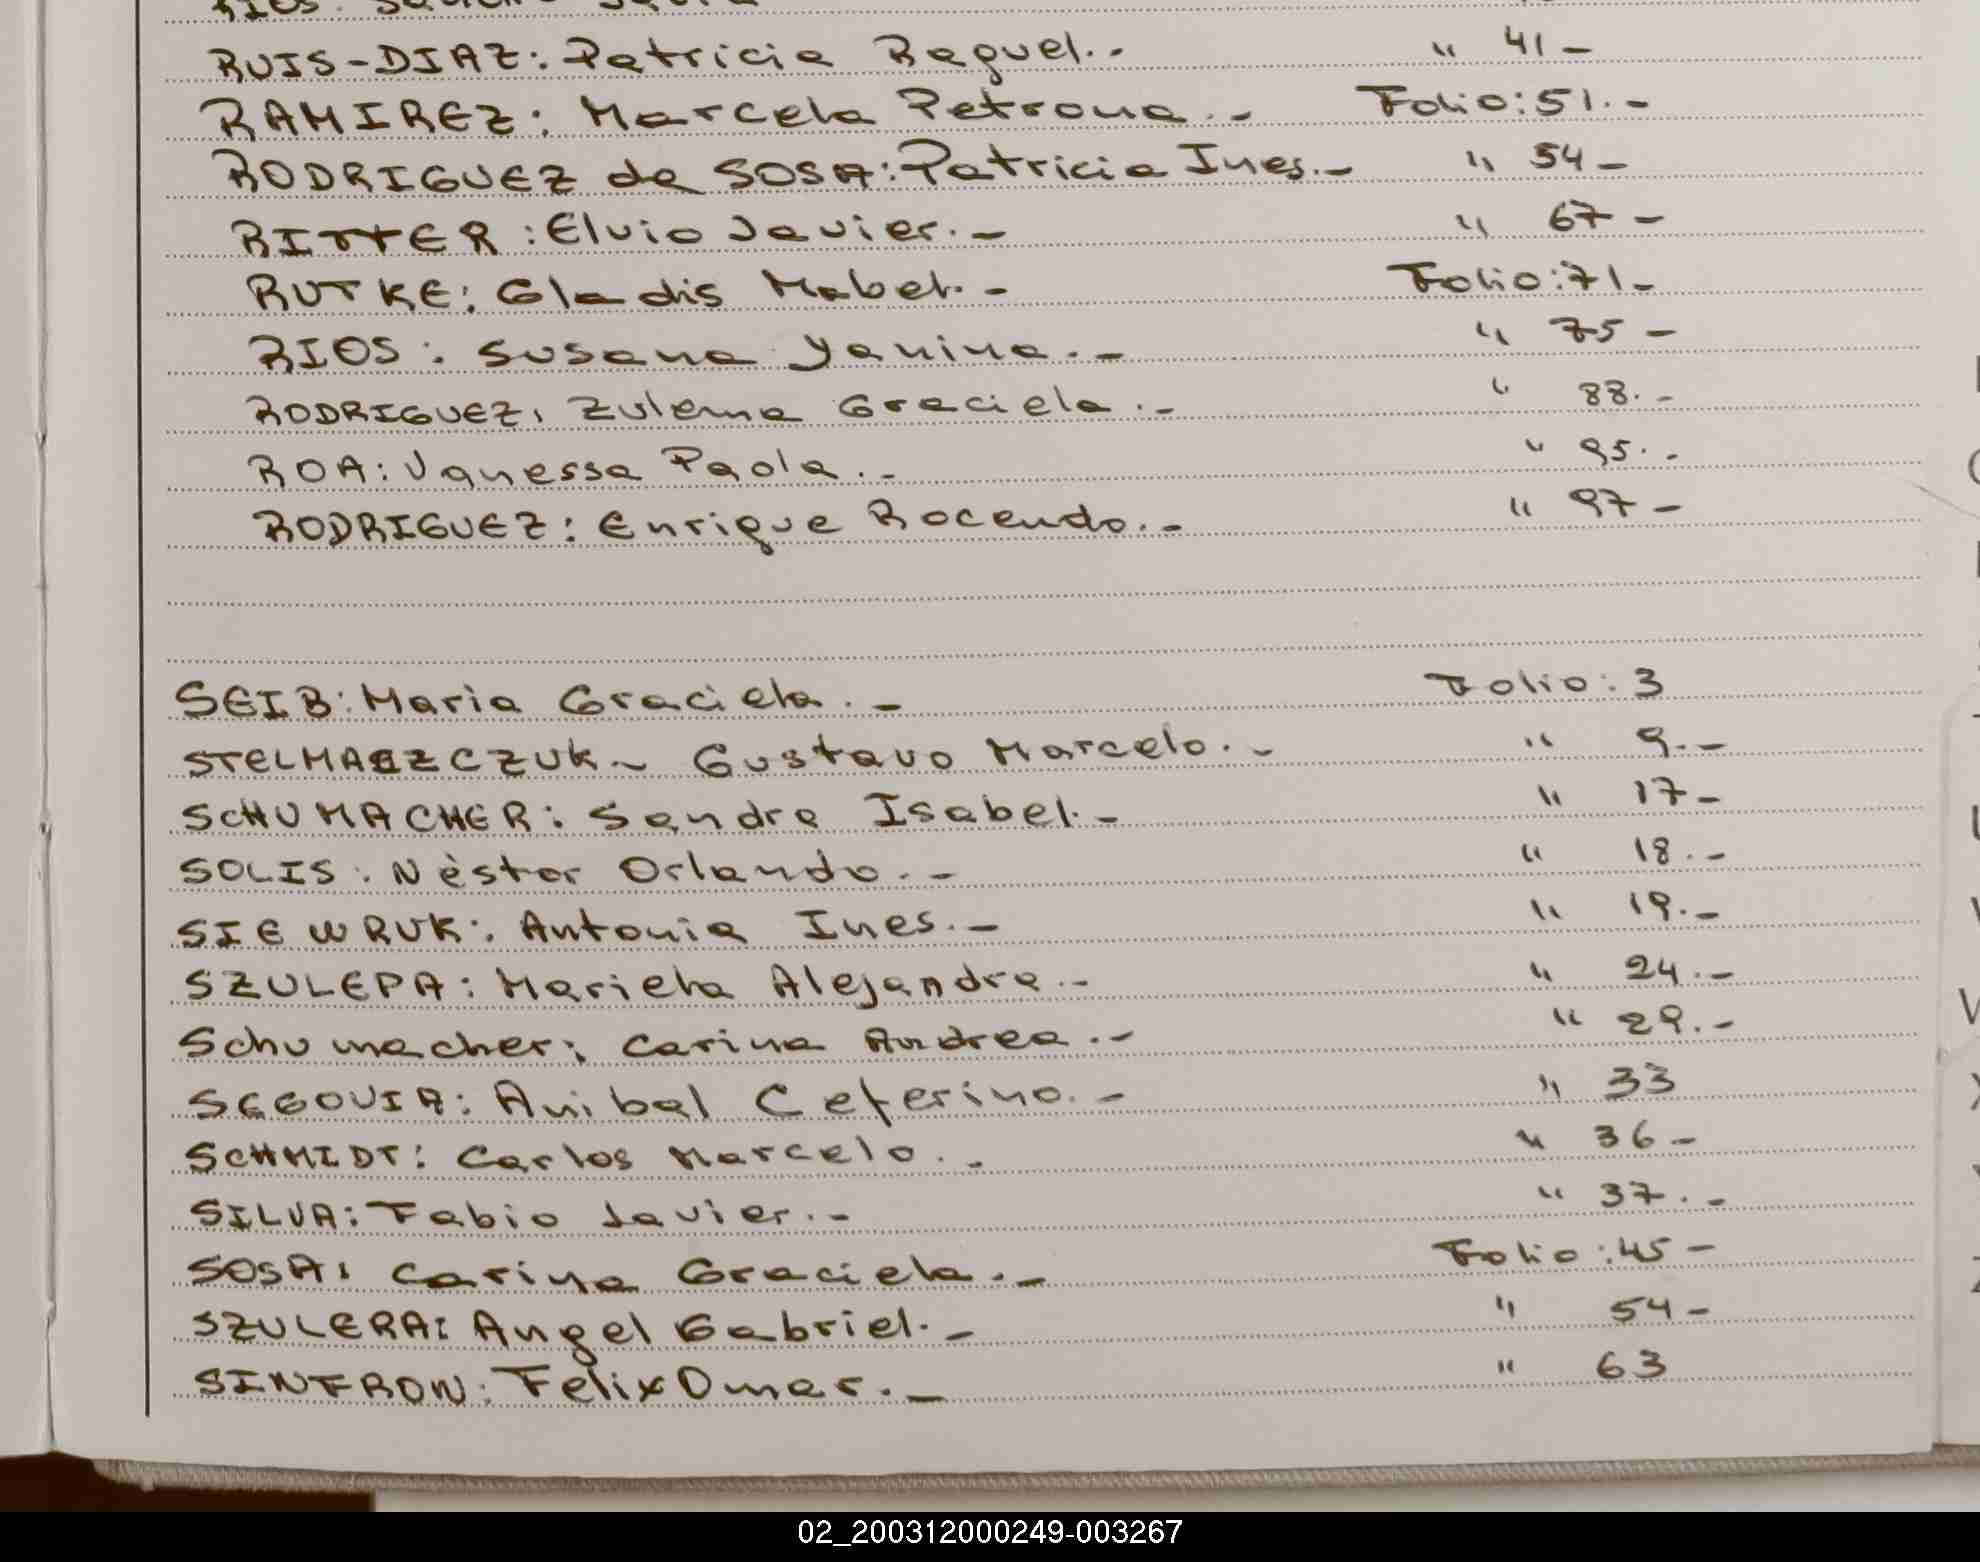 RUIS-DIAZ: Patricia Raquel.- " 41-
RAMIREZ: Marcela Petrona.- Folio: 51.-
RODRIGUEZ de SOSA: Patricia Ines.- " 54-
RITTER: Elvio Javier.- " 67-
RUTKE: Gladis Mabel.- Folio: 71-
RIOS: Susana Yanina.- " 75-
RODRIGUEZ, Zulema Graciela.- " 88.-
ROA: Vanessa Paola.- " 95.-
RODRIGUEZ: Enrique Rocendo.- " 97-
SEIB: Maria Graciela.- Folio: 3
Gustavo Marcelo.- " 9.-
SCHUMACHER: Sandra Isabel.- " 17-
SOLIS: Nèstor Orlando.- " 18.-
SIEWRUK: Antonia Ines.- " 19.-
SZULEPA: Mariela Alejandra.- " 24.-
Schumacher: Carina Andrea.- " 29.-
SEGOVIA: Anibal Ceferino.- " 33
SCHMIDT: Carlos Marcelo.- " 36-
SILVA: Fabio Javier.- " 37.-
SOSA: Carina Graciela.- Folio: 45-
SZULERA: Angel Gabriel.- " 54-
SINFRON: Felix Omar.- " 63
02_200312000249-003267